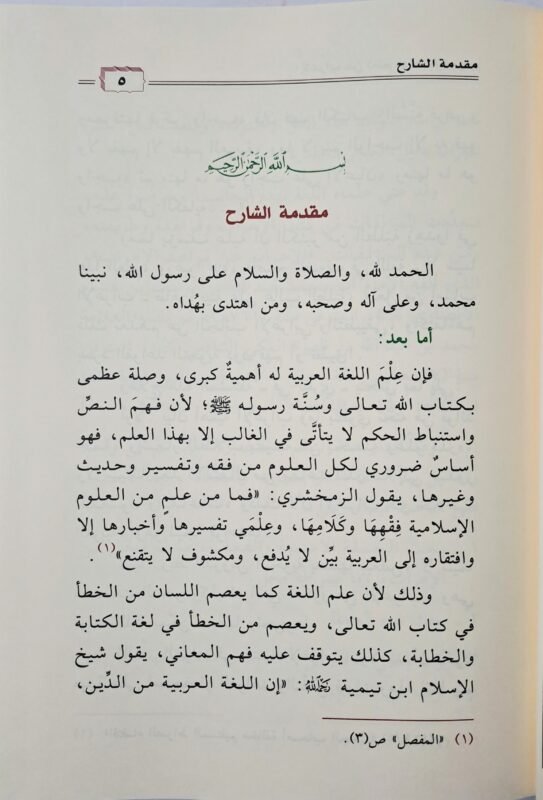 مقدمة الشارح
٥
بِسْمِ اللَّهِ الرَّحْمَٰنِ الرَّحِيمِ
مقدمة الشارح
الحمد لله، والصلاة والسلام على رسول الله، نبينا
محمد، وعلى آله وصحبه، ومن اهتدى بهُداه.
أما بعد:
فإن عِلْمَ اللغة العربية له أهميةٌ كبرى، وصلة عظمى
بكتاب الله تعالى وسُنَّة رسوله ﷺ؛ لأن فهمَ النصِّ
واستنباط الحكم لا يتأتَّى في الغالب إلا بهذا العلم، فهو
أساسٌ ضروري لكل العلوم من فقه وتفسير وحديث
وغيرها، يقول الزمخشري: «فما من علمٍ من العلوم
الإسلامية فِقْهِهَا وكَلَامِهَا، وعِلْمَي تفسيرها وأخبارها إلا
وافتقاره إلى العربية بيِّن لا يُدفع، ومكشوف لا يتقنع»(١).
وذلك لأن علم اللغة كما يعصم اللسان من الخطأ
في كتاب الله تعالى، ويعصم من الخطأ في لغة الكتابة
والخطابة، كذلك يتوقف عليه فهم المعاني، يقول شيخ
الإسلام ابن تيمية رحمه الله: «إن اللغة العربية من الدِّين،
(١) «المفصل» ص(٣).